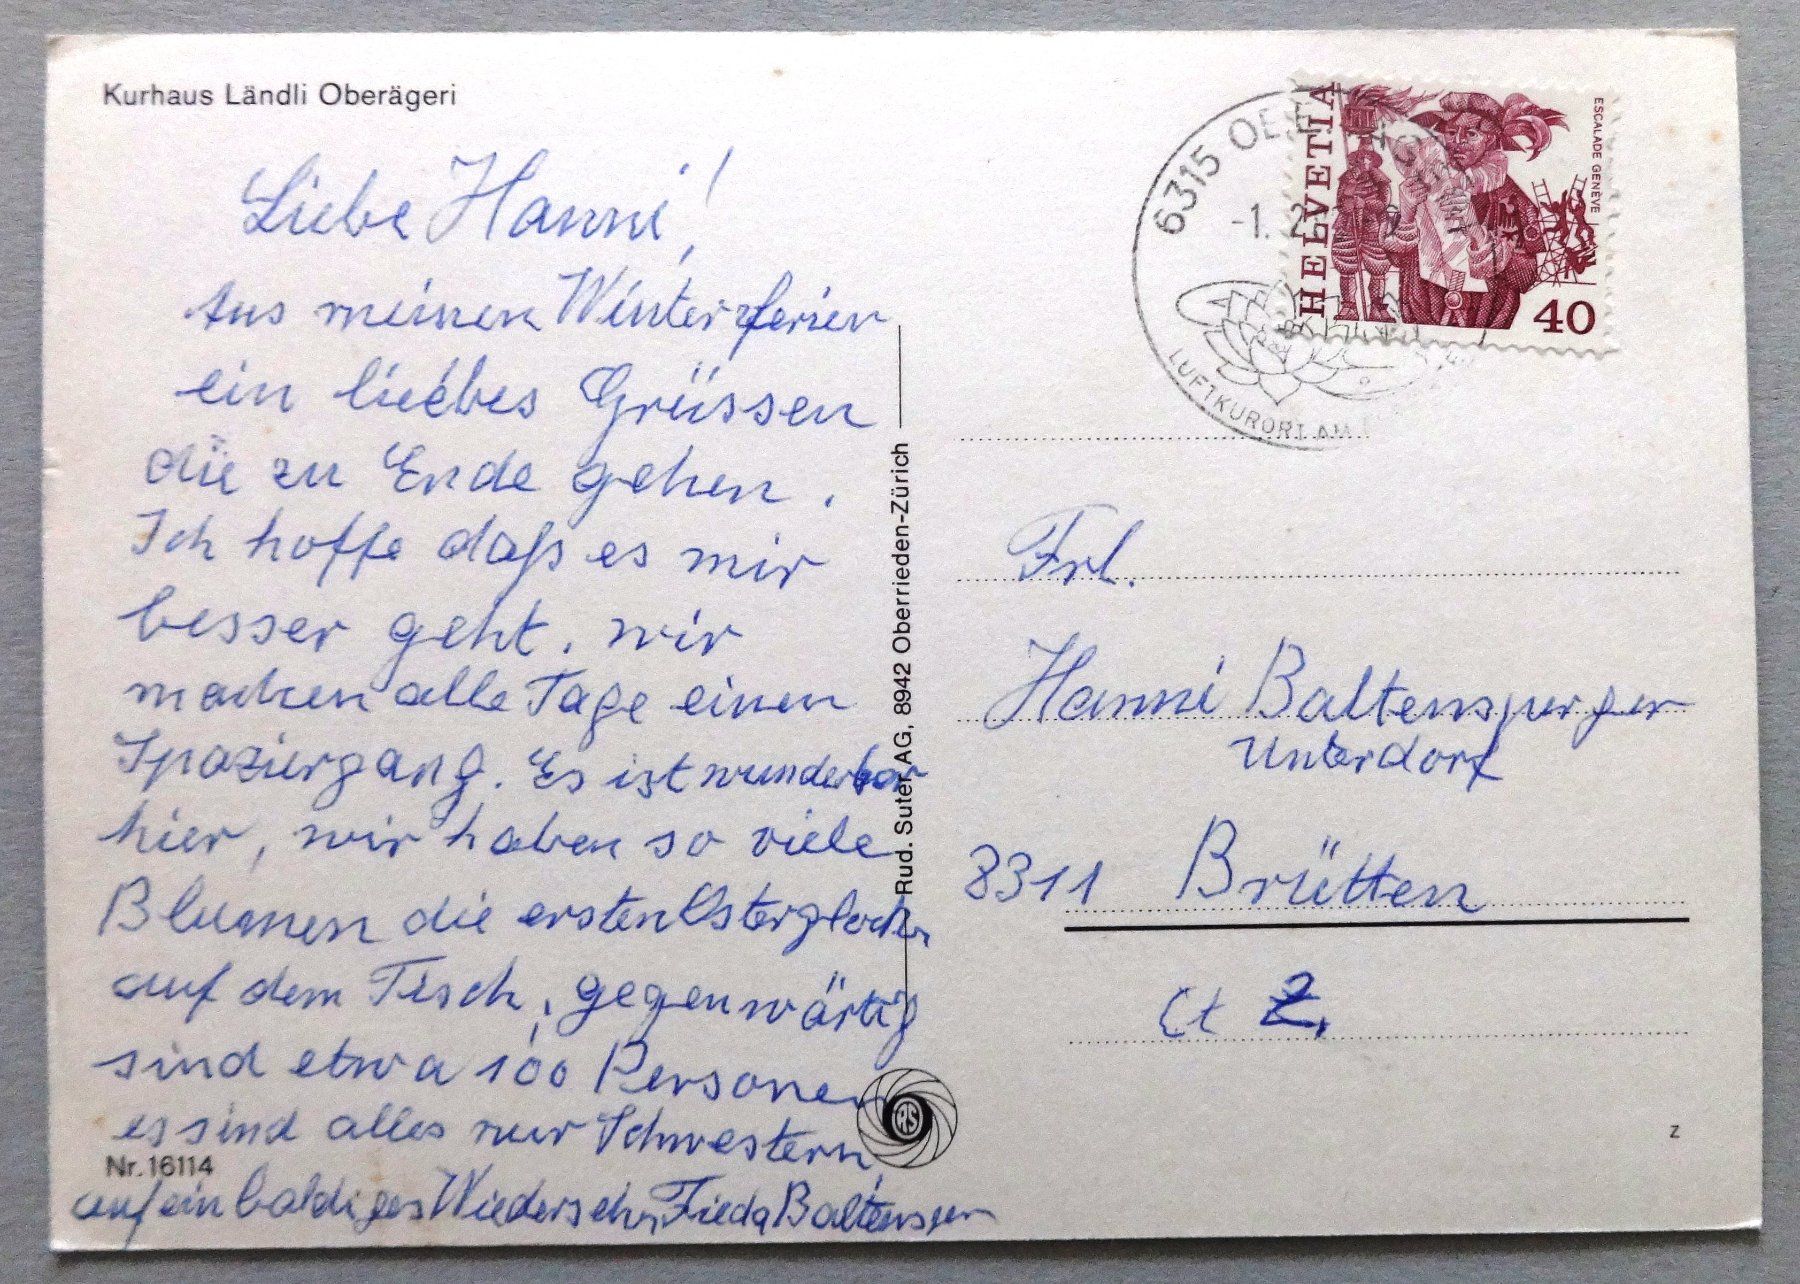 Kurhaus Ländli Oberägeri
Liebe Hanni!
Aus meinen Winterferien
ein liebes Grüssen
die zu Ende gehen.
Ich hoffe daß es mir
besser geht. wir
machen alle Tage einen
Spaziergang. Es ist wunderbar
hier, wir haben so viele
Blumen die ersten Osterglocken
auf dem Tisch, gegenwärtig
sind etwa 100 Personen
es sind alles nur Schwestern,
Nr. 16114
auf ein baldiges Wiedersehn, Frieda Baltensper
Rud. Suter AG, 8942 Oberrieden-Zürich
RS
6315
-1. 2.
LUFTKURORT AM
HELVETIA
ESCALADE GENÈVE
40
Frl.
Hanni Baltensperger
Unterdorf
8311 Brütten
Ct Z.
Z